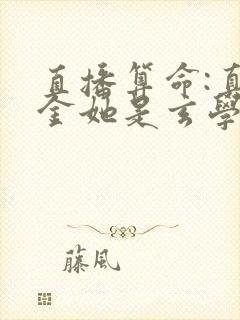 直播算命:真
金她是玄學
藤風